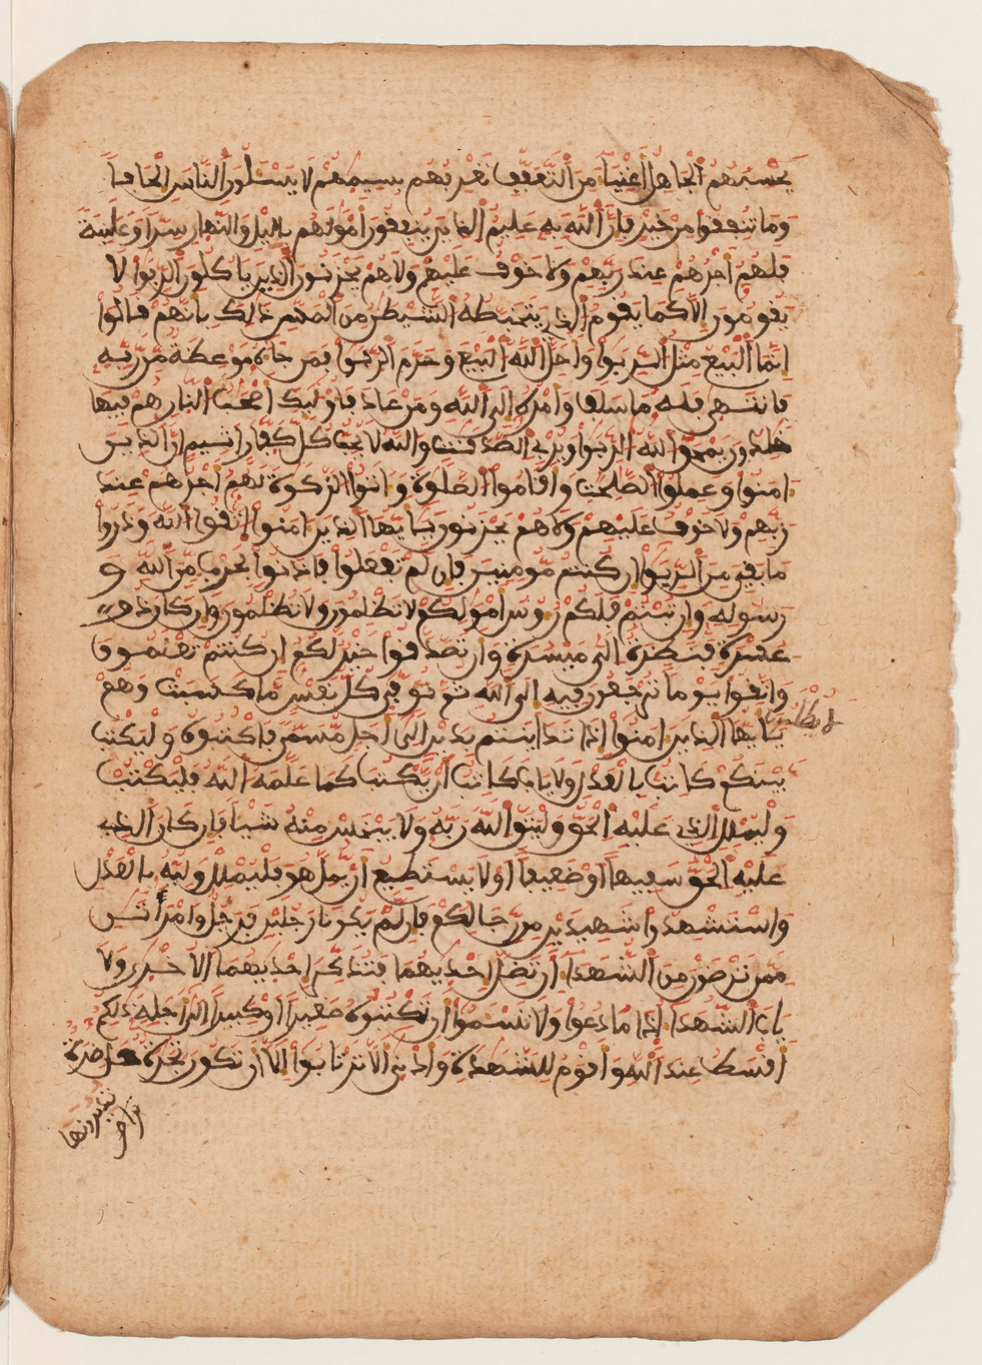 يَحْسِبُهُمُ الْجَاهِلُ أَغْنِيَآءَ مِنَ التَّعَفُّفِ تَعْرِفُهُم بِسِيمَٰهُمْ لَا يَسْـَٔلُونَ النَّاسَ إِلْحَافاً
وَمَا تُنفِقُوا مِنْ خَيْرٍ فَإِنَّ اللَّهَ بِهِ عَلِيمٌ الذِينَ يُنفِقُونَ أَمْوَٰلَهُم بِاليْلِ وَالنَّهارِ سِرّاً وَعَلَٰنِيَةً
فَلَهُمُ أَجْرُهُمْ عِندَ رَبِّهِمْ وَلَا خَوْفٌ عَلَيْهِمْ وَلَا هُمْ يَحْزَنُونَ الذِينَ يَاكُلُونَ الرِّبَوٰا لَا
يَقُومُونَ إِلَّا كَمَا يَقُومُ الذِي يَتَخَبَّطُهُ الشَّيْطَٰنُ مِنَ الْمَسِّ ذَٰلِكَ بِأَنَّهُمْ قَالُوا
إِنَّمَا الْبَيْعُ مِثْلُ الرِّبَوٰا وَأَحَلَّ اللَّهُ الْبَيْعَ وَحَرَّمَ الرِّبَوٰا فَمَن جَآءَهُ مَوْعِظَةٌ مِّن رَّبِّهِ
فَانتَهىٰ فَلَهُ مَا سَلَفَ وَأَمْرُهُ إِلَى اللَّهِ وَمَنْ عَادَ فَأُوْلَٰٓئِكَ أَصْحَٰبُ النّارِ هُمْ فِيهَا
خَٰلِدُونَ يَمْحَقُ اللَّهُ الرِّبَوٰا وَيُرْبِي الصَّدَقَٰتِ وَاللَّهُ لَا يُحِبُّ كُلَّ كَفَّارٍ أَثِيمٍ إِنَّ الذِينَ
ءَامَنُوا وَعَمِلُوا الصَّٰلِحَٰتِ وَأَقَامُوا الصَّلَوٰةَ وَءَاتَوُا الزَّكَوٰةَ لَهُمُ أَجْرُهُمْ عِندَ
رَبِّهِمْ وَلَا خَوْفٌ عَلَيْهِمْ وَلَا هُمْ يَحْزَنُونَ يَٰٓأَيُّهَا الذِينَ ءَامَنُوا اتَّقُوا اللَّهَ وَذَرُوا
مَا بَقِيَ مِنَ الرِّبَوٰا إِن كُنتُم مُّومِنِينَ فَإِن لَّمْ تَفْعَلُوا فَاذَنُوا بِحَرْبٍ مِّنَ اللَّهِ وَ
رَسُولِهِ وَإِن تُبْتُمْ فَلَكُمْ رُءُوسُ أَمْوَٰلِكُمْ لَا تَظْلِمُونَ وَلَا تُظْلَمُونَ وَإِن كَانَ ذُو
عُسْرَةٍ فَنَظِرَةٌ اِلَىٰ مَيْسُرَةٍ وَأَن تَصَّدَّقُوا خَيْرٌ لَّكُمُ إِن كُنتُمْ تَعْلَمُونَ
وَاتَّقُوا يَوْماً تُرْجَعُونَ فِيهِ إِلَى اللَّهِ ثُمَّ تُوَفَّىٰ كُلُّ نَفْسٍ مَّا كَسَبَتْ وَهُمْ
لَا يُظْلَمُونَ
يَٰٓأَيُّهَا الذِينَ ءَامَنُوا إِذَا تَدَايَنتُم بِدَيْنٍ اِلَىٰ أَجَلٍ مُّسَمًّى فَاكْتُبُوهُ وَلْيَكْتُب
بَّيْنَكُمْ كَاتِبٌ بِالْعَدْلِ وَلَا يَابَ كَاتِبٌ أَنْ يَّكْتُبَ كَمَا عَلَّمَهُ اللَّهُ فَلْيَكْتُبْ
وَلْيُمْلِلِ الذِي عَلَيْهِ الْحَقُّ وَلْيَتَّقِ اللَّهَ رَبَّهُ وَلَا يَبْخَسْ مِنْهُ شَيْـٔاً فَإِن كَانَ الذِي
عَلَيْهِ الْحَقُّ سَفِيهاً أَوْ ضَعِيفاً أَوْ لَا يَسْتَطِيعُ أَنْ يُّمِلَّ هُوَ فَلْيُمْلِلْ وَلِيُّهُ بِالْعَدْلِ
وَاسْتَشْهِدُوا شَهِيدَيْنِ مِن رِّجَالِكُمْ فَإِن لَّمْ يَكُونَا رَجُلَيْنِ فَرَجُلٌ وَامْرَأَتَٰنِ
مِمَّن تَرْضَوْنَ مِنَ الشُّهَدَآءِ أَن تَضِلَّ إِحْدَيٰهُمَا فَتُذَكِّرَ إِحْدَيٰهُمَا الْأُخْرَىٰ وَلَا
يَابَ الشُّهَدَآءُ إِذَا مَا دُعُوا وَلَا تَسْـَٔمُوا أَن تَكْتُبُوهُ صَغِيراً أَوْ كَبِيراً اِلَىٰ أَجَلِهِ ذَٰلِكُمُ
أَقْسَطُ عِندَ اللَّهِ وَأَقْوَمُ لِلشَّهَٰدَةِ وَأَدْنَىٰ أَلَّا تَرْتَابُوا إِلَّا أَن تَكُونَ تِجَٰرَةٌ حَاضِرَةٌ
تُدِيرُونَهَا